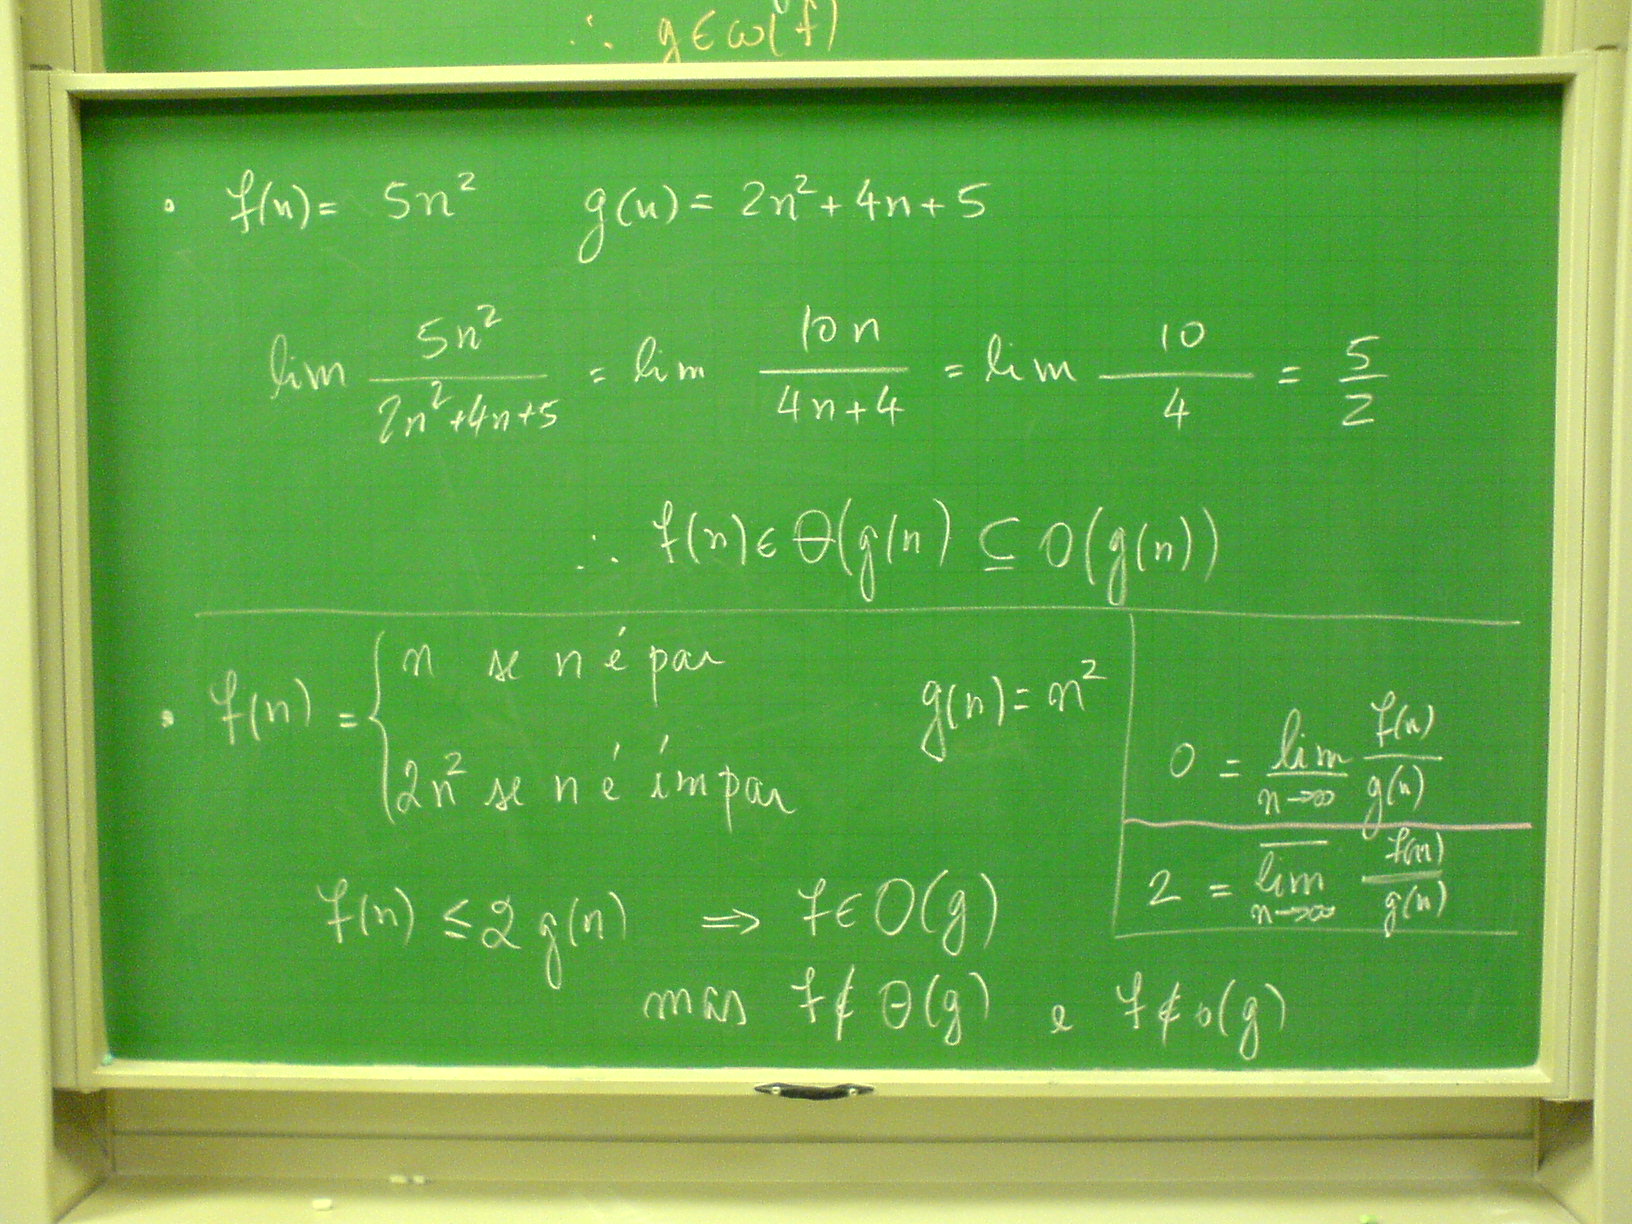 ∴ g ∈ ω(f)
• f(n) = 5n² g(n) = 2n² + 4n + 5
lim 5n² / (2n² + 4n + 5) = lim 10n / (4n + 4) = lim 10 / 4 = 5 / 2
∴ f(n) ∈ Θ(g(n) ⊆ O(g(n))
• f(n) = { n se n é par
2n² se n é ímpar
g(n) = n²
0 = lim n→∞ f(n) / g(n)
2 = lim n→∞ f(n) / g(n)
f(n) ≤ 2g(n) ⇒ f ∈ O(g)
mas f ∉ Θ(g) e f ∉ o(g)